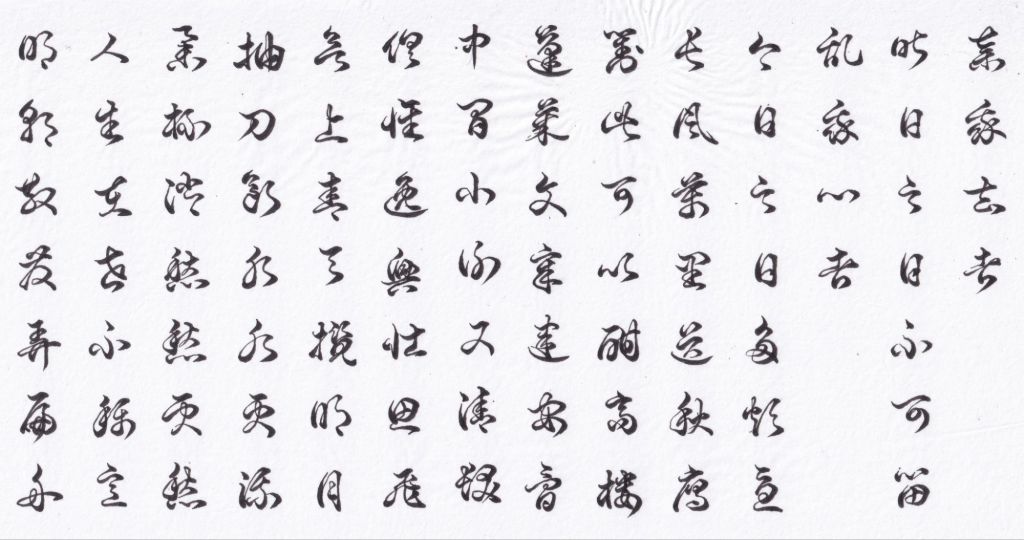 棄我去者
昨日之日不可留
乱我心者
今日之日多煩憂
長風萬里送秋雁
對此可以酣高樓
蓬萊文章建安骨
中間小謝又清發
俱懷逸興壯思飛
欲上青天攬明月
抽刀斷水水更流
舉杯消愁愁更愁
人生在世不稱意
明朝散髮弄扁舟